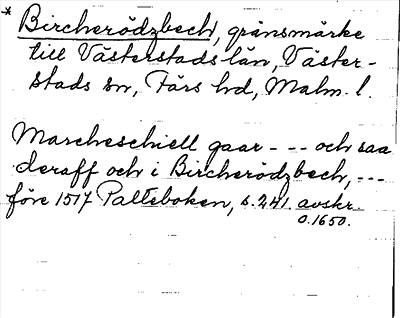 * Bircherödzbech, gränsmärke
till Västerstads län, Väster-
stads sn, Färs hd, Malm. l.
Marcheschiell gaar - -- och saa
deraff och i Bircherödzbech, ---
före 1517 Palteboken, s. 241. avskr.
o. 1650.